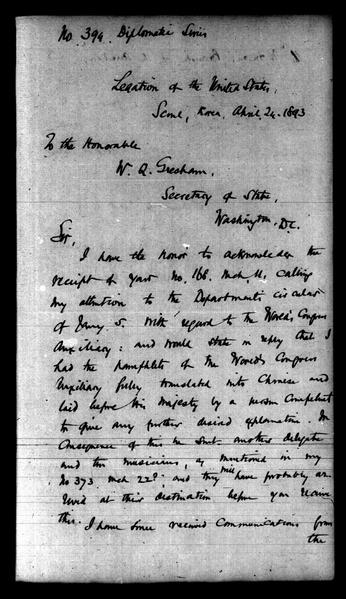 No. 394. Diplomatic Series
Legation of the United States,
Seoul, Korea, April 24. 1893
To the Honorable
W. Q. Gresham,
Secretary of State,
Washington, D.C.
Sir,
I have the honor to acknowledge the
receipt of your No. 168. Mch. 11, calling
my attention to the Department's circular
of Jany. 5. with regard to the World's Congress
Auxiliary: and would state in reply that I
had the pamphlets of the World's Congress
Auxiliary fully translated into Chinese and
laid before His Majesty by a person competent
to give any further desired explanation. In
consequence of this he sent another delegate
and ten musicians, as mentioned in my
No 373 Mch 22d; and they will have probably ar-
rived at their destination before you receive
this. I have since received communications from
the